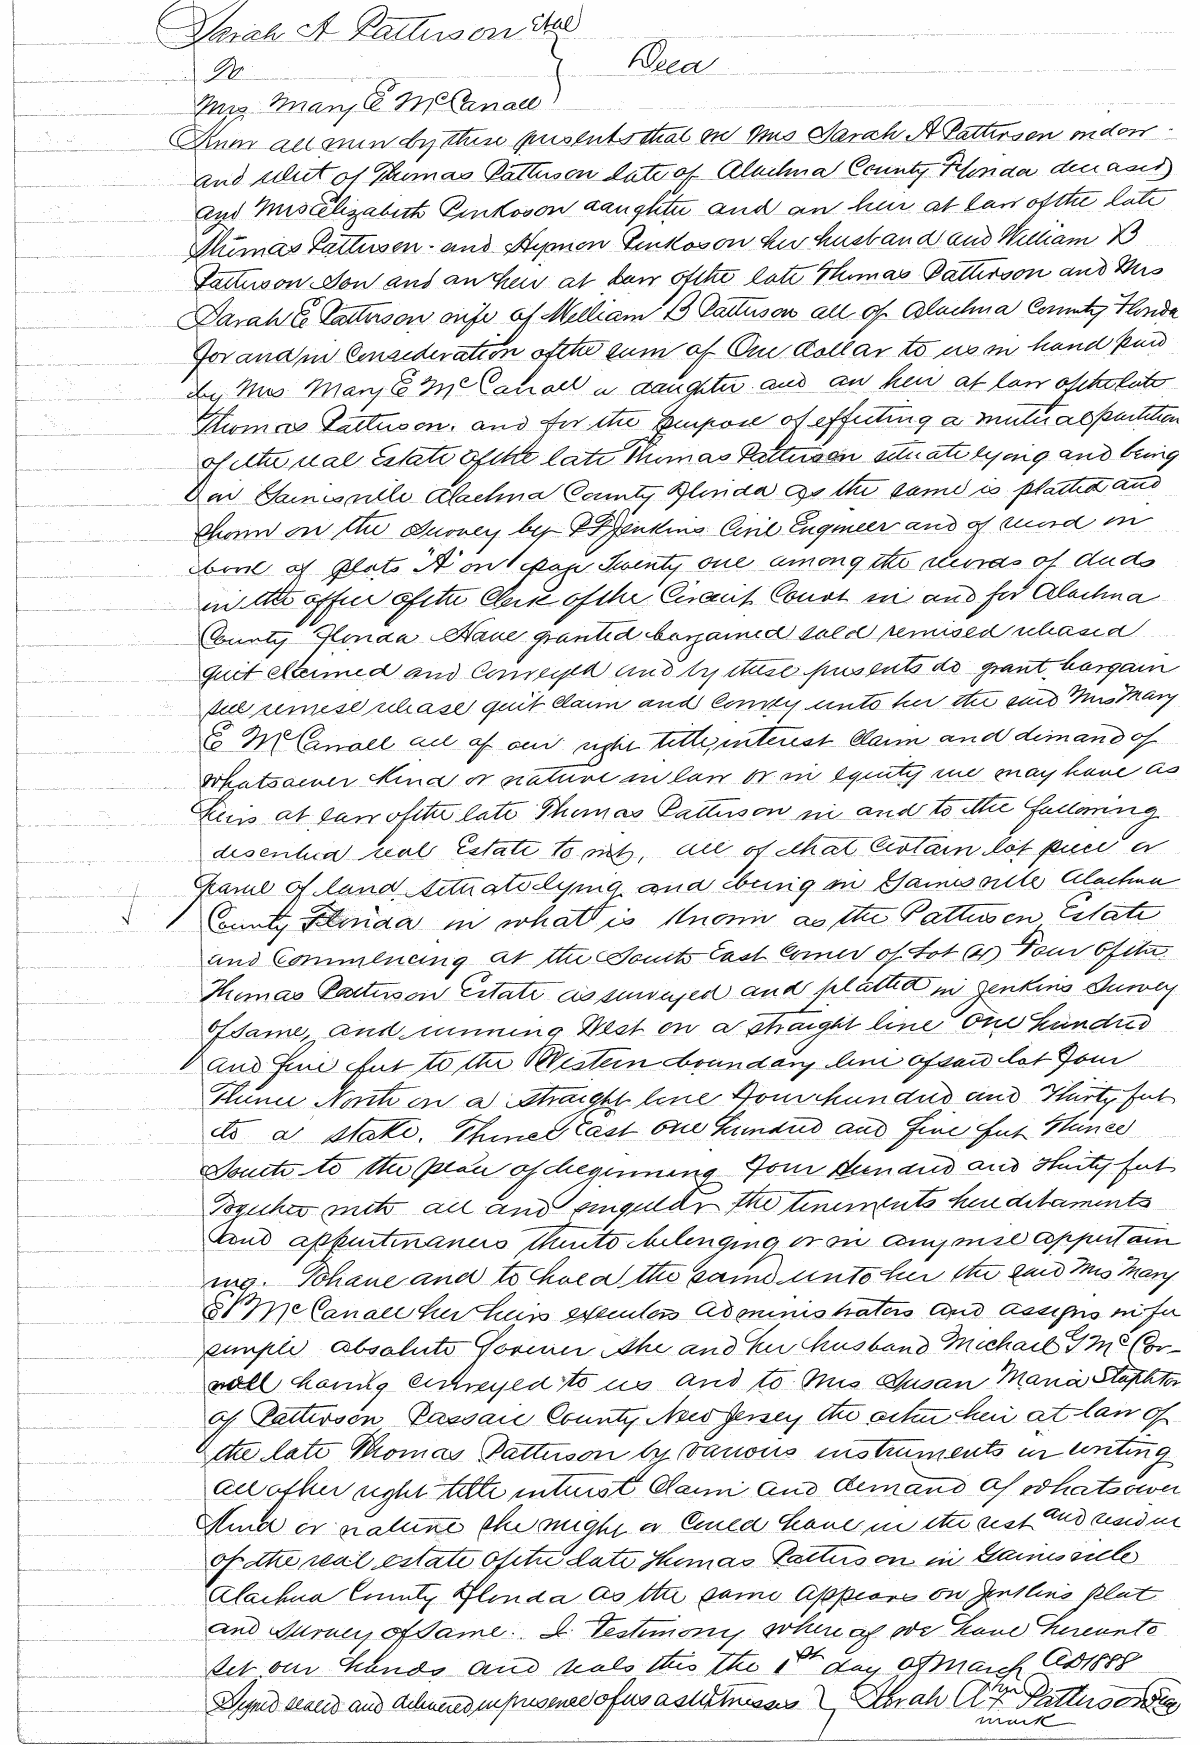 Sarah A Patterson etal
To
Deed
Mrs Mary E McCanall
Know all men by these presents that we Mrs Sarah A Patterson widow
and relict of Thomas Patterson late of Alachua County Florida deceased
and Mrs Elizabeth Pinkoson daughter and an heir at law of the late
Thomas Patterson. and Hymon Pinkoson her husband and William B
Patterson Son and an heir at law of the late Thomas Patterson and Mrs
Sarah E Patterson wife of William B Patterson all of Alachua County Florida
for and in Consideration of the sum of One dollar to us in hand paid
by Mrs Mary E McCanall a daughter and an heir at law of the late
Thomas Patterson. and for the purpose of effecting a mutual partition
of the real Estate of the late Thomas Patterson situate lying and being
in Gainesville Alachua County Florida as the same is platted and
shown on the survey by Jenkins Civil Engineer and of record in
book of plats "A" on page Twenty one among the records of deeds
in the office of the Clerk of the Circuit Court in and for Alachua
County Florida Have granted bargained sold remised released
quit claimed and conveyed and by these presents do grant, bargain
sell remise release quit claim and convey unto her the said Mrs Mary
E McCanall all of our right title, interest Claim and demand of
whatsoever kind or nature in law or in equity we may have as
heirs at law of the late Thomas Patterson in and to the following
described real Estate to wit, all of that certain lot piece or
parcel of land situate lying and being in Gainesville Alachua
County Florida in what is known as the Patterson Estate
and Commencing at the South East Corner of Lot (4) Four of the
Thomas Patterson Estate as surveyed and platted in Jenkins Survey
of same, and running West on a straight line One hundred
and five feet to the Western boundary line of said lot Four
Thence North on a straight line Four hundred and Thirty feet
to a stake. Thence East one hundred and five feet Thence
South to the place of beginning Four Hundred and thirty feet
Together with all and singular the tenements hereditaments
and appurtinances thereto belonging or in anywise appertain
ing. To have and to hold the same unto her the said Mrs Mary
E McCanall her heirs executors administrators and assigns in fee
simple absolute forever she and her husband Michael G McCor-
nell having conveyed to us and to Mrs Susan Maria
of Patterson Passaic County New Jersey the other heir at law of
the late Thomas Patterson by various instruments in writing
all other right title interest Claim and demand of whatsoever
kind or nature she might or could have in the rest and residue
of the real estate of the late Thomas Patterson in Gainesville
Alachua County Florida as the same appears on Jenkins plat
and survey of same. In Testimony where of we have hereunto
set our hands and seals this the 1st day of March AD 1888
Signed sealed and delivered in presence of us as witnesses } Sarah A her x Patterson Seal
mark